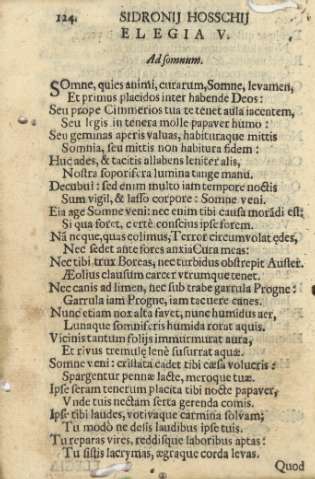 124. SIDRONIJ HOSSCHIJ
ELEGIA V.
Ad somnum.
SOmne, quies animi, curarum, Somne, levamen,
Et primus placidos inter habende Deos:
Seu prope Cimmerios tua te tenet aula jacentem,
Seu legis in tenera molle papaver humo:
Seu geminas aperis valvas, habituraque mittis
Somnia, seu mittis non habitura fidem:
Huc ades, & tacitis allabens leniter alis,
Nostra soporifera lumina tange manu.
Decubui: sed enim multo jam tempore noctis
Sum vigil, & lasso corpore: Somne veni.
Eia age Somne veni: nec enim tibi causa morādi est;
Si qua foret, certè conscius ipse forem.
Nā neque, quas colimus, Terror circumvolat ędes,
Nec sedet ante fores anxia Cura meas:
Nec tibi trux Boreas, nec turbidus obstrepit Auster.
Æolius clausum carcer vtrumque tenet.
Nec canis ad limen, nec sub trabe garrula Progne:
Garrula jam Progne, jam tacuere canes.
Nunc etiam nox alta favet, nunc humidus aër,
Lunaque somniferis humida rorat aquis.
Vicinis tantum folijs immurmurat aura,
Et rivus tremulę lenè susurrat aquæ.
Somne veni: cristata cadet tibi cæsa volucris:
Spargentur pennæ lacte, meroque tuæ.
Ipse seram tenerum placita tibi nocte papaver,
Vnde tuis nectam serta gerenda comis.
Ipse tibi laudes, votivaque carmina solvam;
Tu modò ne desis laudibus ipse tuis.
Tu reparas vires, reddisque laboribus aptas:
Tu sistis lacrymas, ægraque corda levas.
Quod